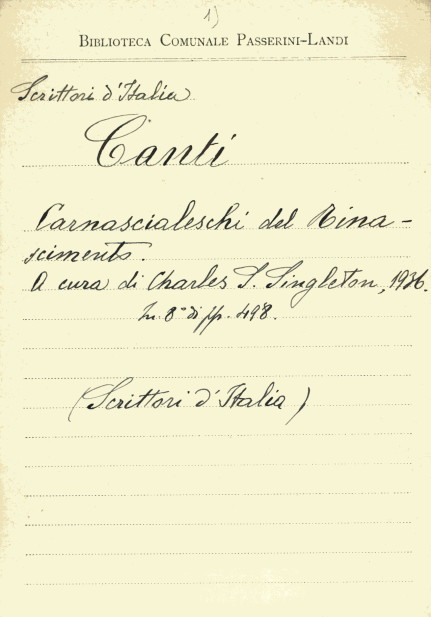 1)
BIBLIOTECA COMUNALE PASSERINI-LANDI
Scrittori d'Italia
Canti
Carnascialeschi del Rina-
scimento.
A cura di Charles S. Singleton, 1936.
In. 8° di pp. 498.
(Scrittori d'Italia)